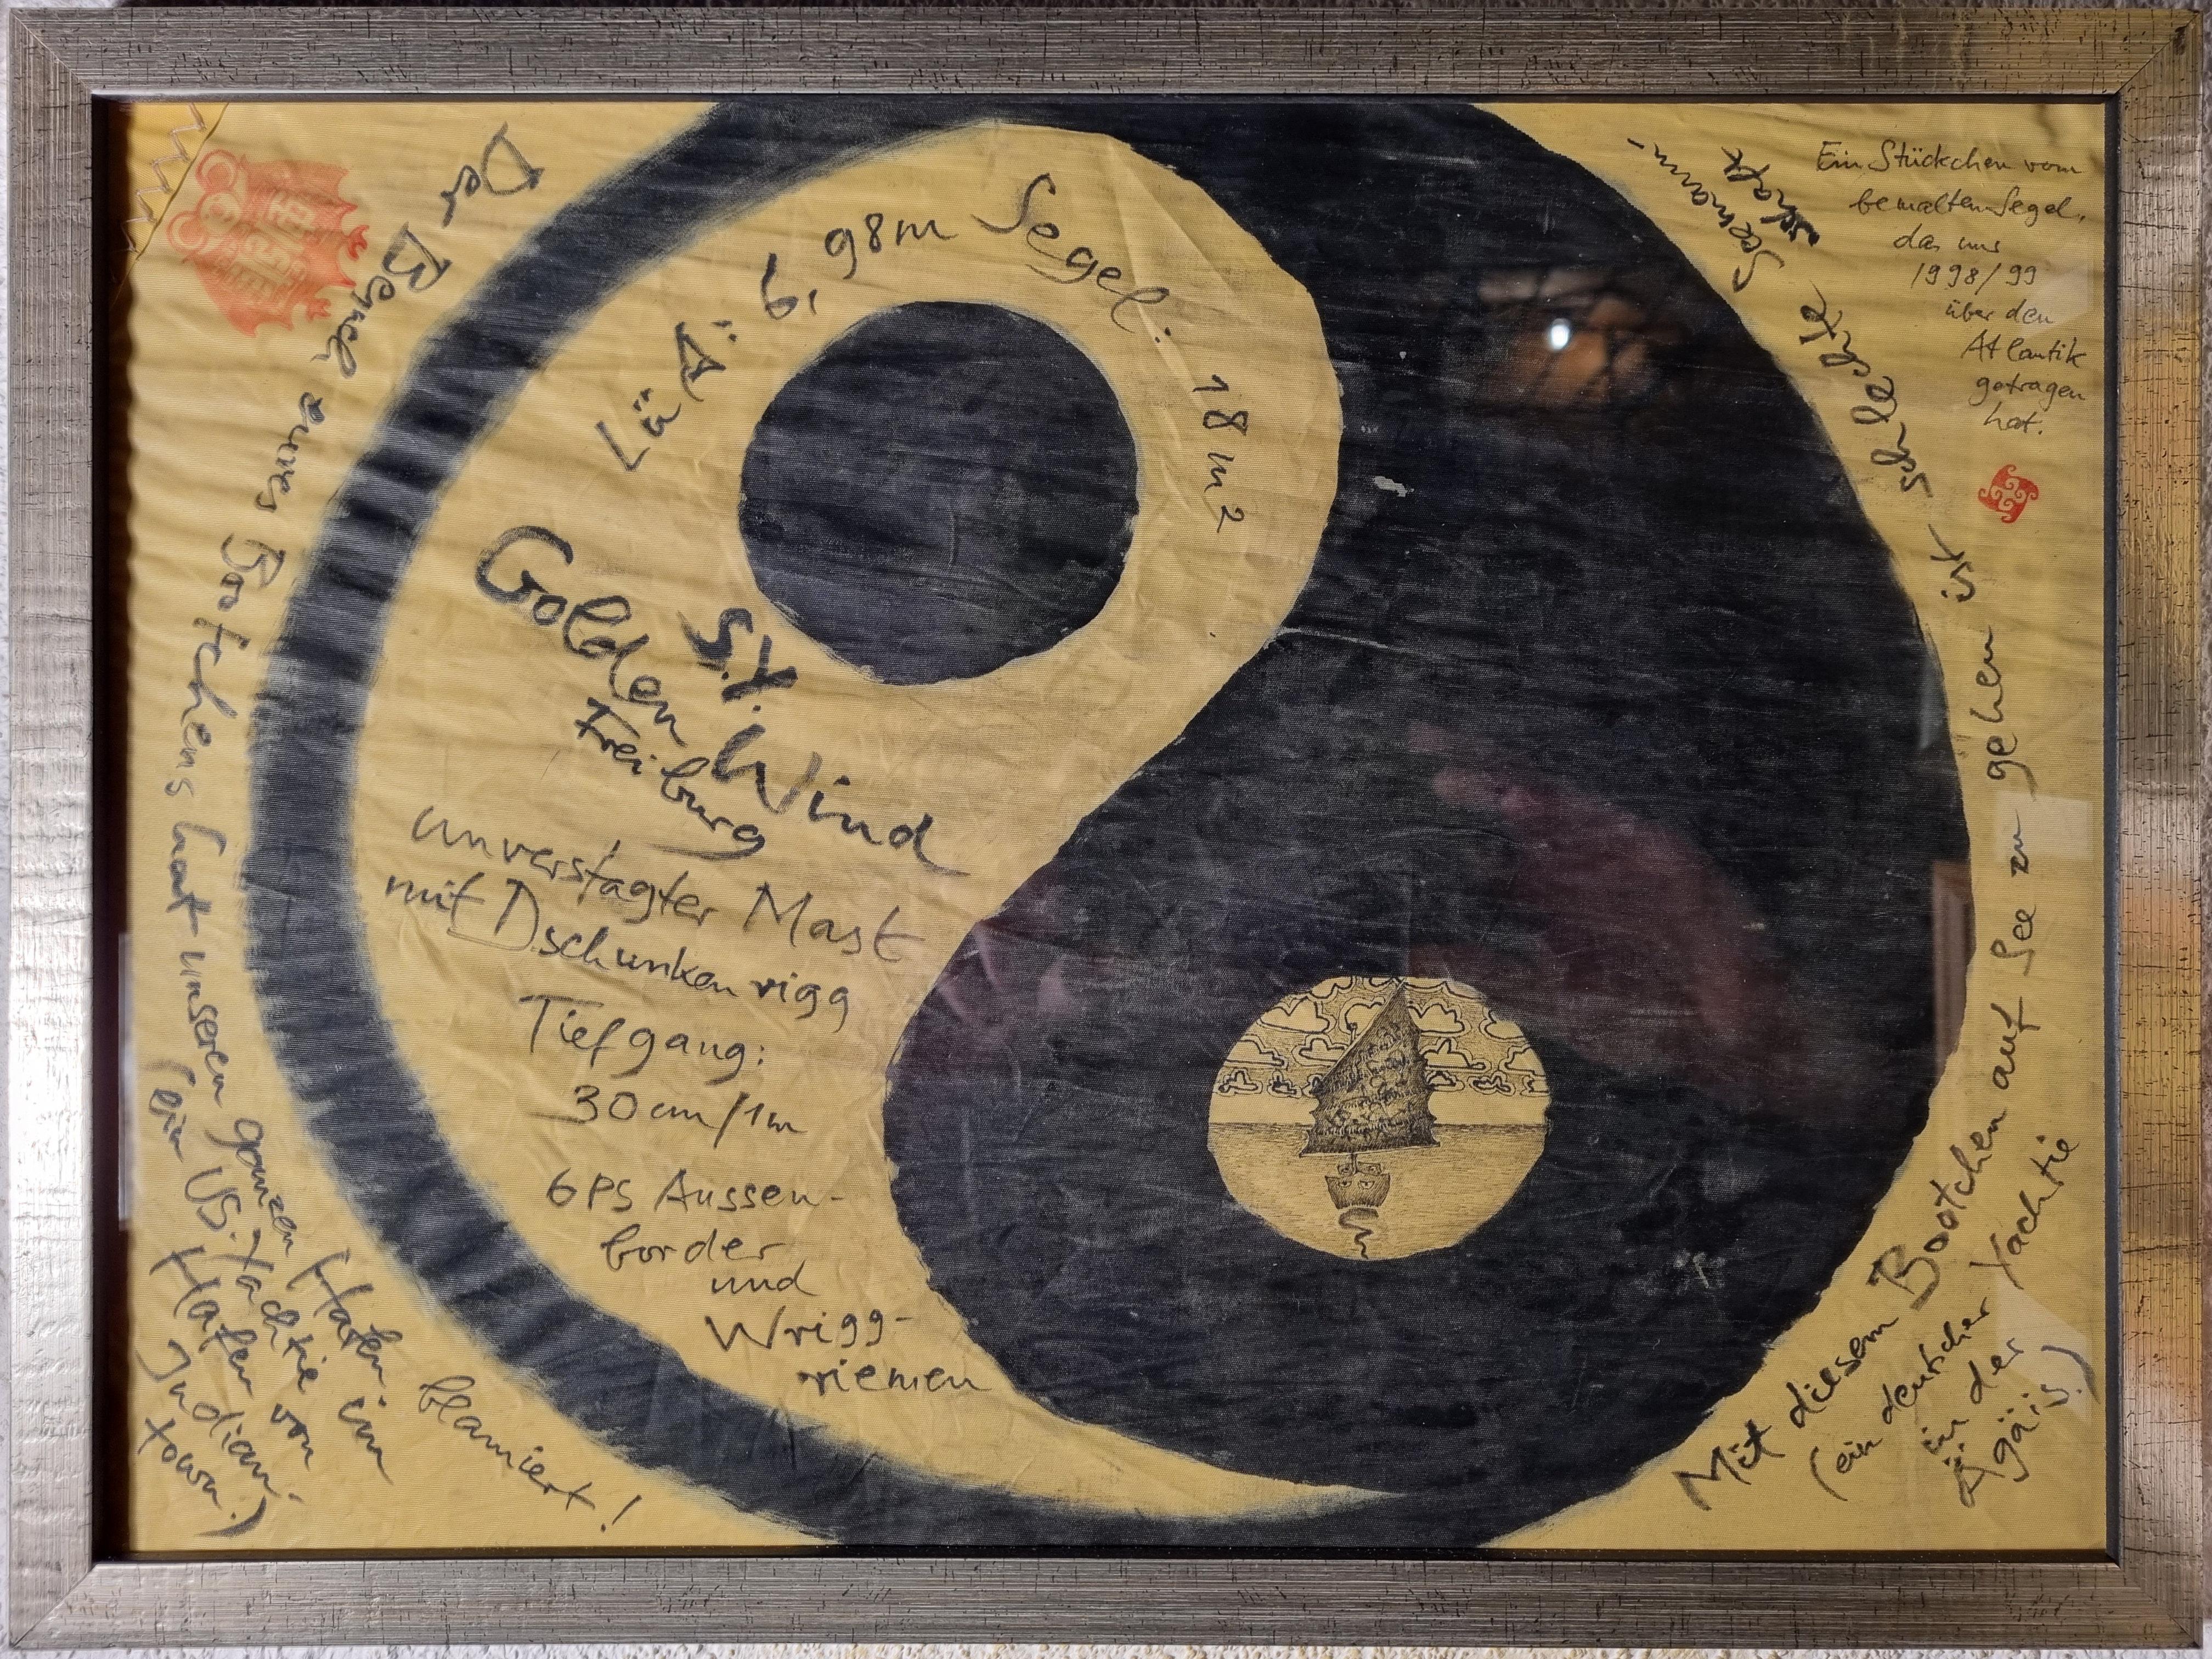 Ein Stückchen vom
bemalten Segel,
das uns
1998/99
über den
Atlantik
getragen
hat.
LüA: 6,98m Segel: 18m2
S.Y.
Golden Wind
Freiburg
unverstagter Mast
mit Dschunkenrigg
Tiefgang:
30cm/1m
6PS Aussen-
border
und
Wrigg-
riemen
Der Besuch eures Bootchens hat unseren ganzen Hafen blamiert!
(ein US-Yachtie im
Hafen von
Indian-
town.)
Mit diesem Bootchen auf See zu gehen ist schlechte Seemann-
schaft
(ein deutscher Yachtie
in der
Ägäis.)